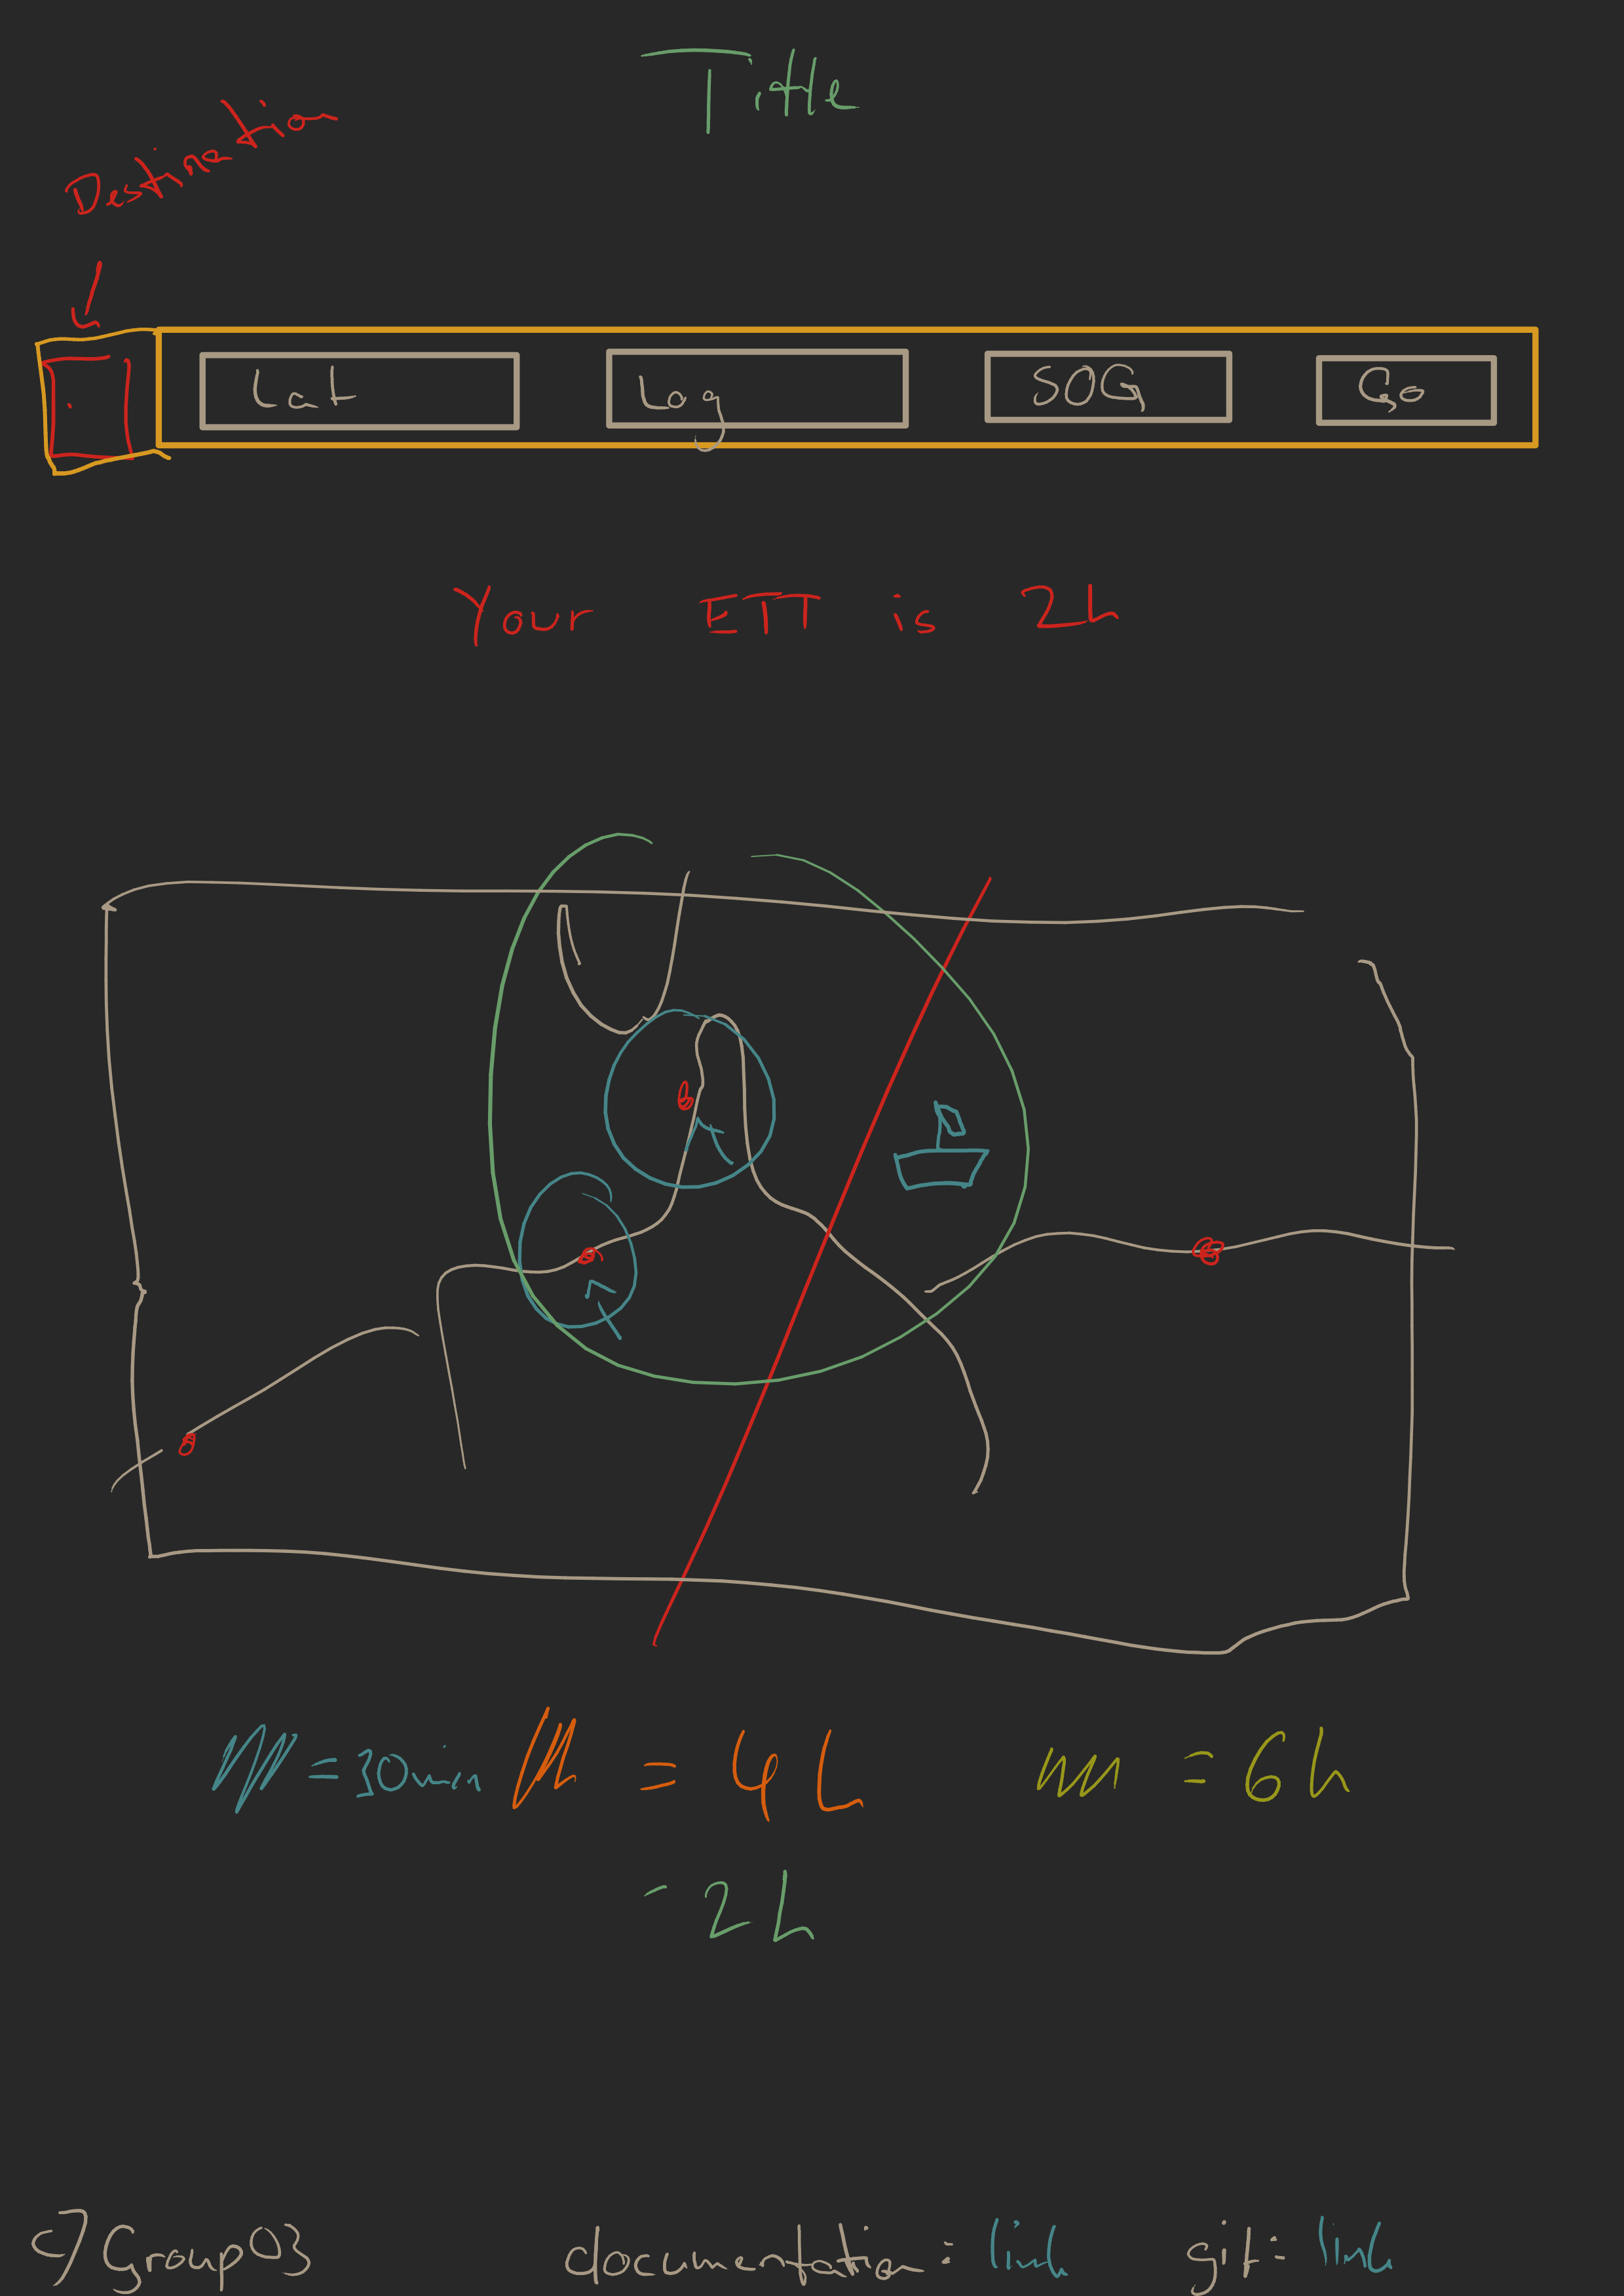 Title
Destination
Lat Log SOG Go
Your ETT is 2h
= 30min = 4h = 6h
- 2h
Group03 documentation: link git: link